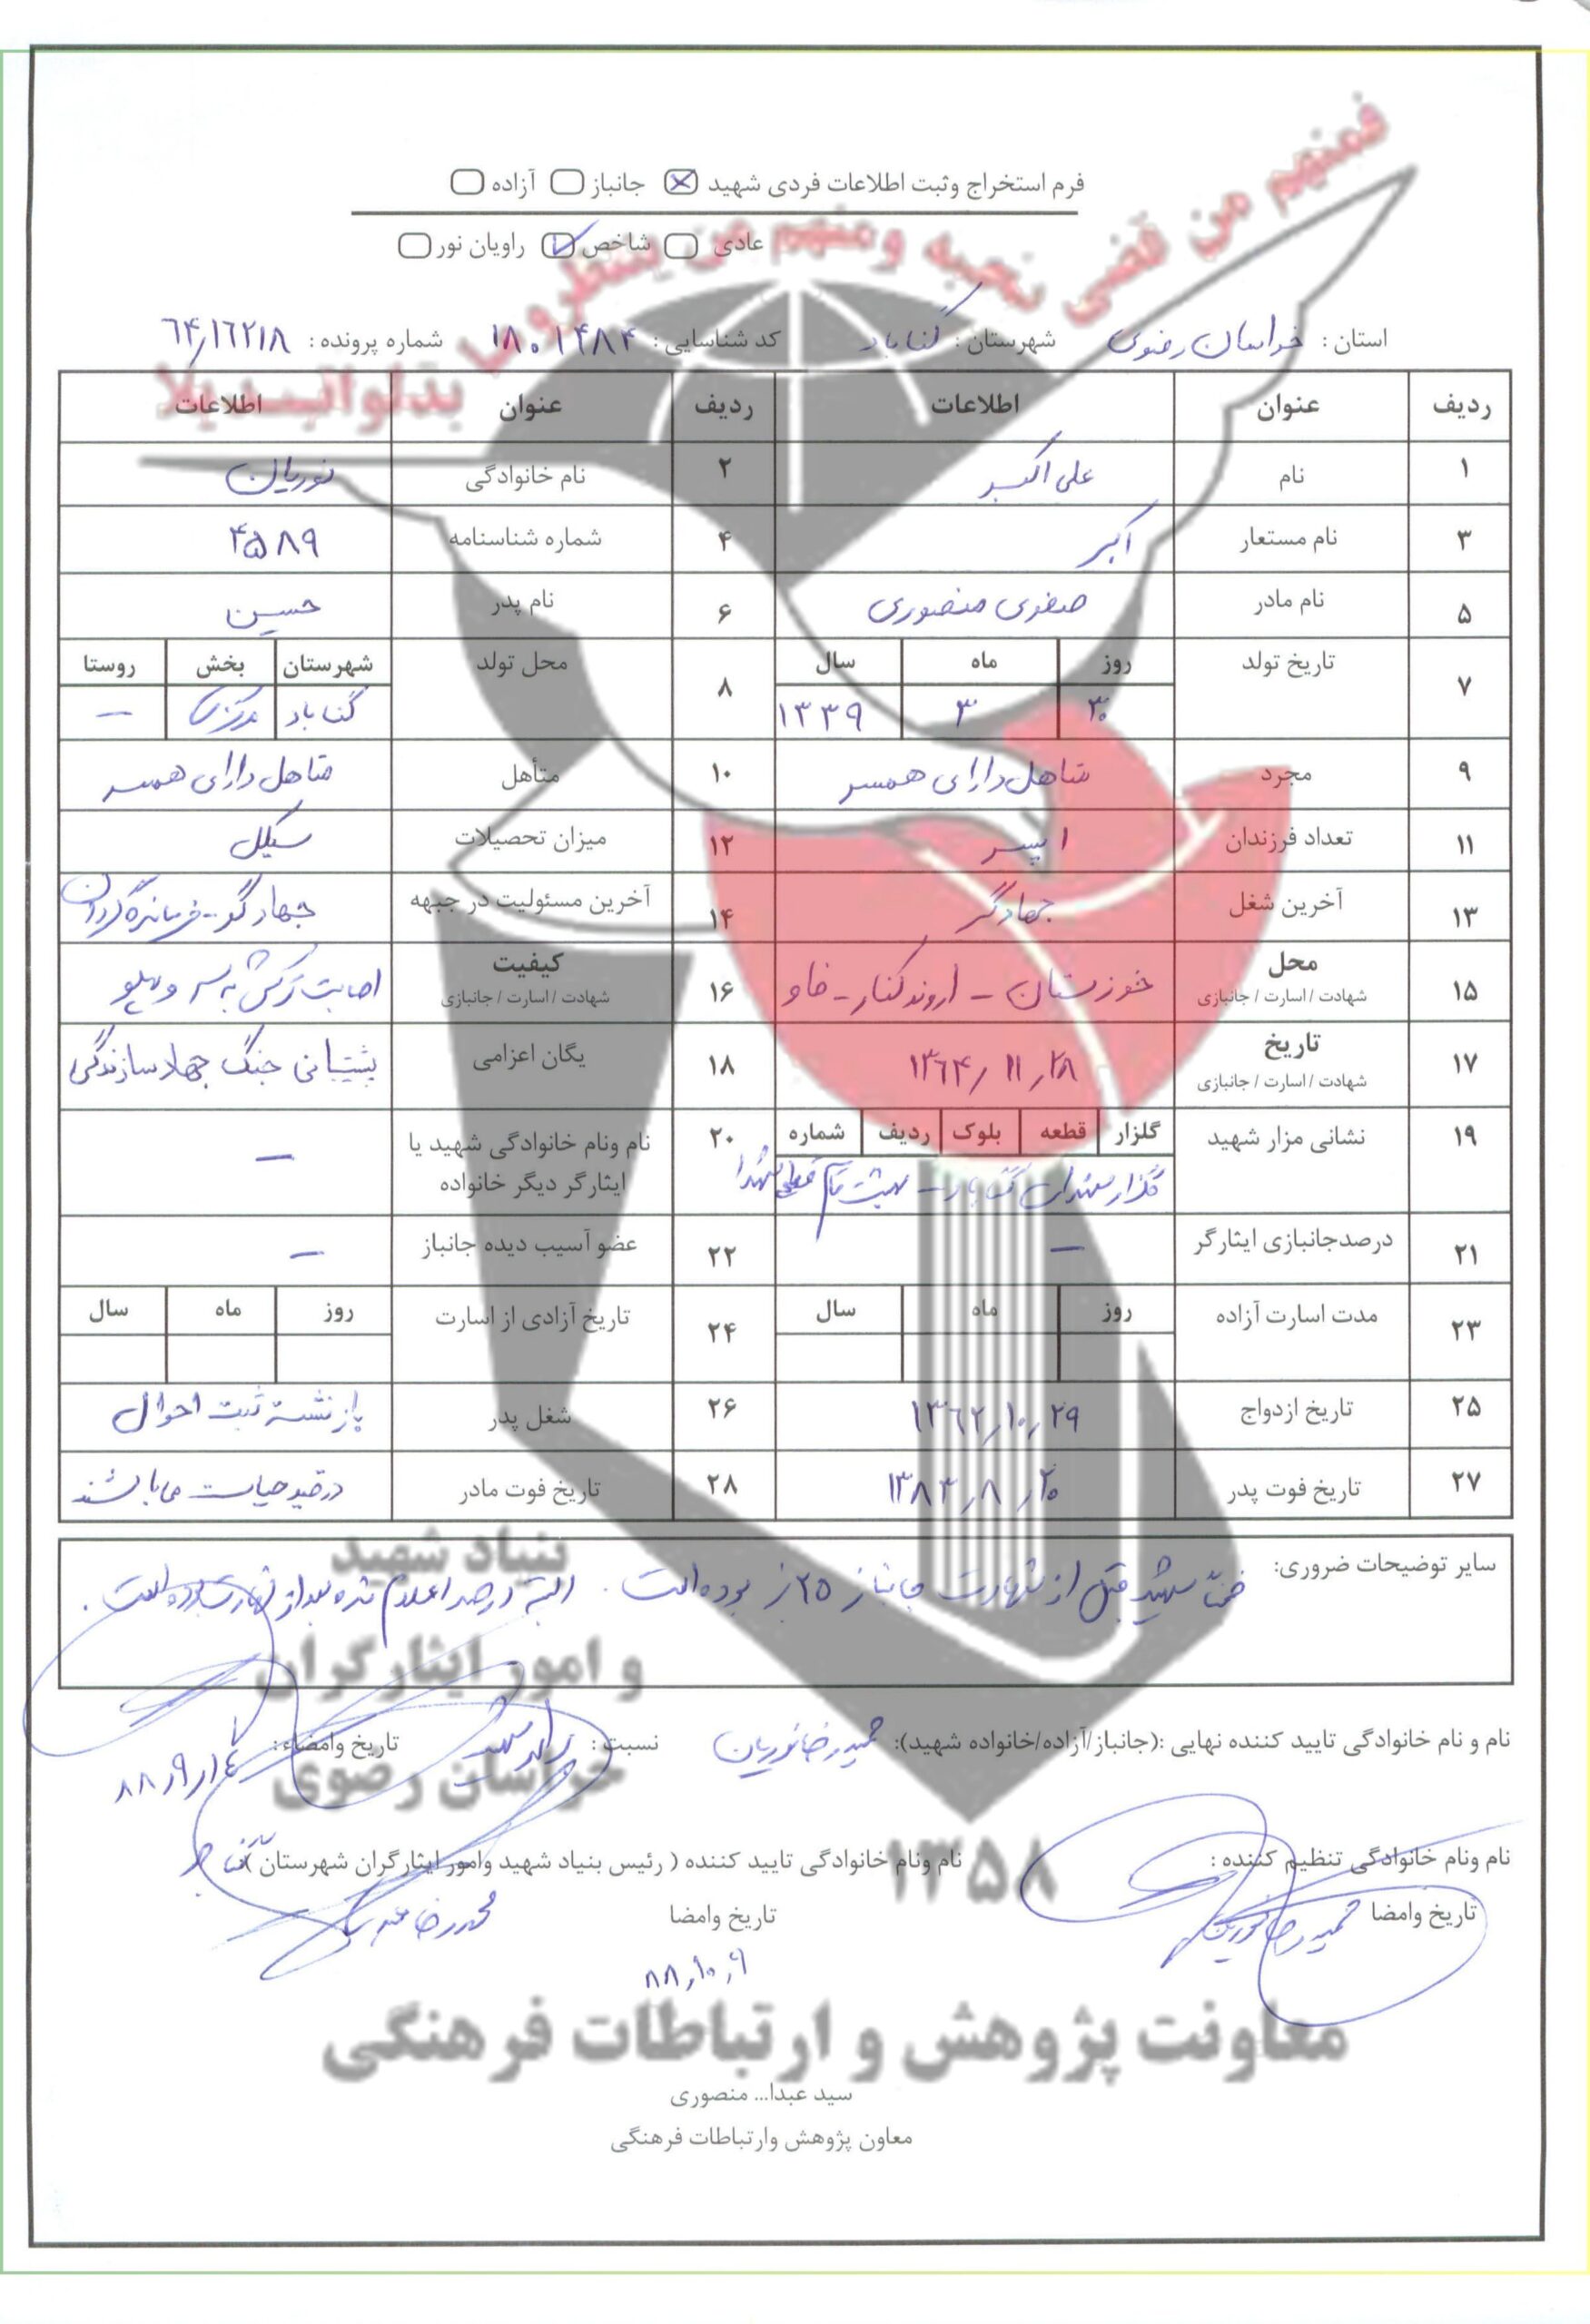 فمنهم من قضی نحبه ومنهم من ینتظر و ما بدلوا تبدیلا
فرم استخراج وثبت اطلاعات فردی شهید جانباز آزاده
عادی شاخص راویان نور
استان: خراسان رضوی شهرستان: گناباد کد شناسایی: ۱۸۰۱۴۸۴ شماره پرونده: ۶۴/۱۶۲۱۸
ردیف عنوان اطلاعات ردیف عنوان اطلاعات
۱ نام علی اکبر ۲ نام خانوادگی نوریان
۳ نام مستعار اکبر ۴ شماره شناسنامه ۴۵۸۹
۵ نام مادر صغری منصوری ۶ نام پدر حسین
۷ تاریخ تولد روز ماه سال ۸ محل تولد شهرستان بخش روستا
۳۰ ۳ ۱۳۳۹ گناباد مرکزی —
۹ مجرد متاهل دارای همسر ۱۰ متأهل متاهل دارای همسر
۱۱ تعداد فرزندان ۱ پسر ۱۲ میزان تحصیلات سیکل
۱۳ آخرین شغل جهادگر ۱۴ آخرین مسئولیت در جبهه جهادگر - فرمانده گردان
۱۵ محل خوزستان - اروندکنار - فاو ۱۶ کیفیت اصابت ترکش به سر و پهلو
شهادت / اسارت / جانبازی شهادت / اسارت / جانبازی
۱۷ تاریخ ۱۳۶۴/۱۱/۲۸ ۱۸ یگان اعزامی پشتیبانی جنگ جهاد سازندگی
شهادت / اسارت / جانبازی
۱۹ نشانی مزار شهید گلزار قطعه بلوک ردیف شماره ۲۰ نام ونام خانوادگی شهید یا —
گلزار شهدای گناباد - بهشت قطعه شهدا ایثارگر دیگر خانواده
۲۱ درصدجانبازی ایثارگر — ۲۲ عضو آسیب دیده جانباز —
۲۳ مدت اسارت آزاده روز ماه سال ۲۴ تاریخ آزادی از اسارت روز ماه سال
۲۵ تاریخ ازدواج ۱۳۶۲/۱۰/۲۹ ۲۶ شغل پدر بازنشسته ثبت احوال
۲۷ تاریخ فوت پدر ۱۳۸۳/۸/۲۰ ۲۸ تاریخ فوت مادر درقید حیات می باشند
سایر توضیحات ضروری: ضمناً شهید قبل از شهادت جانباز ۲۵٪ نیز بوده است. البته درصد اعلام شده بعد از شهادت بوده است.
بنیاد شهید
و امور ایثارگران
خراسان رضوی
۱۳۵۸
نام و نام خانوادگی تایید کننده نهایی :(جانباز/آزاده/خانواده شهید): حمیدرضا نوریان نسبت: تاریخ وامضاء:
نام ونام خانوادگی تنظیم کننده: نام ونام خانوادگی تایید کننده ( رئیس بنیاد شهید وامور ایثارگران شهرستان ): گناباد
تاریخ وامضا حمیدرضا نوریان تاریخ وامضا محمدرضا
۸۸/۱۰/۹
معاونت پژوهش و ارتباطات فرهنگی
سید عبدا... منصوری
معاون پژوهش وارتباطات فرهنگی